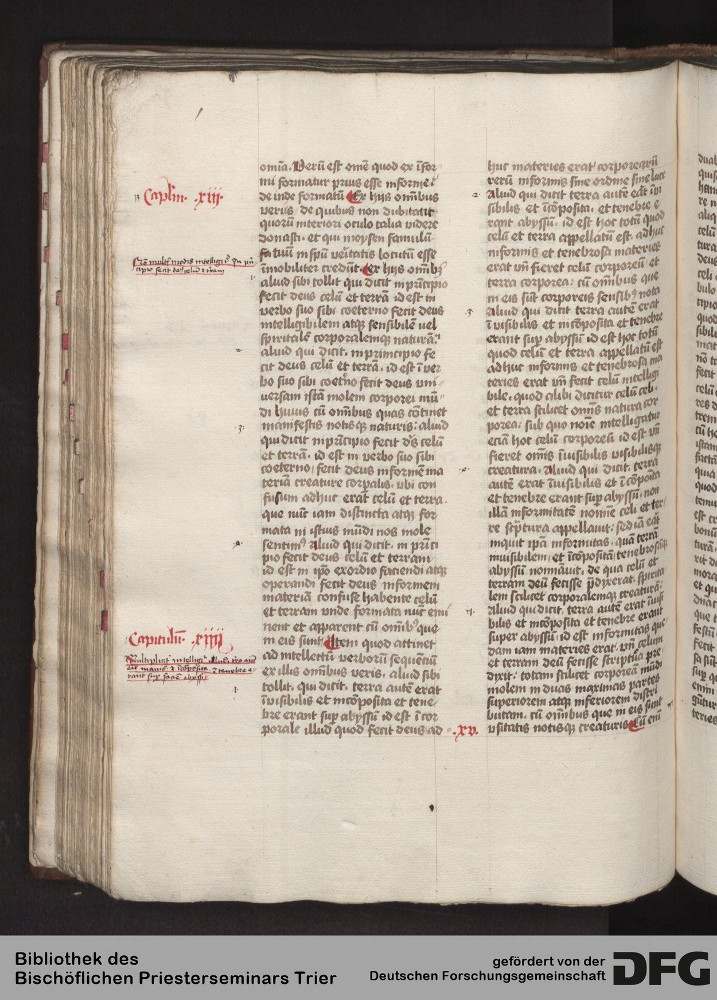 Caplm. xiij.
omīa. Verū est omē quod ex īfor
mi formatur prius esse informe ⁊
de inde formatū Ex hijs omībus
verus de quibus non dubitatūt
quorū interiori oculo talia videre
donasti. et qui moysen famulū
tuū in spū veritatis locutū esse
īmobiliter credūt. Ex hijs omībꝫ
aliud sibi tollit qui dicit in prīcipio
fecit deus celū et terrā id est in
verbo suo sibi coeterno fecit deus
intelligibilem atqꝫ sensibilē vel
spiritalē corporalemqꝫ naturā.
aliud qui dicit. in principio fe
cit deus celū et terrā. id est ī ver
bo suo sibi coetno fecit deus vni
uersam istā molem corporei mū
di huius cū omībus quas cōtinet
manifestis notisqꝫ naturis. aliud
qui dicit in prīcipio fecit dꝰs celū
et terrān. id est in verbo suo sibi
coeterno fecit deus informē ma
teriā creature corpalis. vbi con
fusum adhuc erāt celū et terra.
que nūc iam distincta atqꝫ for
mata in istius mūdi nos mole
sentimꝰ Aliud qui dicit. in prīci
pio fecit deus celū et terram
id est in ipō exordio faciendi atqꝫ
operandi fecit deus informem
materiā confuse habente celū
et terram vnde formata nūc emi
nent et apparent cū omībꝫ que
in eis sunt Item quod attinet
Capitulū. xiiij
ad intellectū verborū sequeciū
ex illis omībus veris. aliud sibi
tollit. qui dicit. terra autē erāt
īuisibilis et incōposita et tene
bre erant sup abyssū id est ī cor
porale illud quod fecit deus ad
huc materies erat corporearū
rerū informis sine ordine sine luce
Aliud qui dicit terra autē erāt īui
sibilis et īcōposita. et tenebre e
rant sup abyssū. id est hoc totū quod
celū et terra appellatū est. adhuc
informis et tenebrosa materies
erat vn̄ fieret celū corporeū et
terra corporea. cū omībus que
in eis sūt corporeis sensibꝫ nota
Aliud qui dicit terra autē erat
ī visibilis et incōposita et tenebre
erant sup abyssū id est hoc totū
quod celū et terra appellatū est
adhuc informis et tenebrosa ma
teries erat vn̄ fecit celū intelligi
bile. quod alibi dicitur celū celi.
et terra scilicet omīs natura cor
porea. sub quo noīe intelligatur
eciā hoc celū corporeū id est vn̄
fieret omīs īuisibilis visibilisqꝫ
creatura. Aliud qui dicit. terra
autē erat īuisibilis et ī cōposita
et tenebre erant sup abyssū. non
illā informitatē nomīe celi et ter
re scptura appellauit. sed iā erāt
inquit ipā informitas. quā terrā
inuisibilem. et īcōpositā tenebrosaqꝫ
abyssū nomīauit. de qua celū et
terram deū fecisse pdixerat. spirita
lem scilicet corporalemqꝫ creaturā.
Aliud qui dicit. terra autē erat īuisi
bilis et incōposita et tenebre erant
super abyssū id est informitas que
dam iam materies erat. vn̄ celum
et terram deū fecisse scriptura pre
dixit. totam scilicet corporeā mūdi
molem in duas maximas partes
superiorem atqꝫ inferiorem distri
butam. cū omībus que in eis sunt
.xv. vsitatis notisqꝫ creaturis. Cū enī
Bibliothek des
Bischöflichen Priesterseminars Trier
gefördert von der
Deutschen Forschungsgemeinschaft
DFG